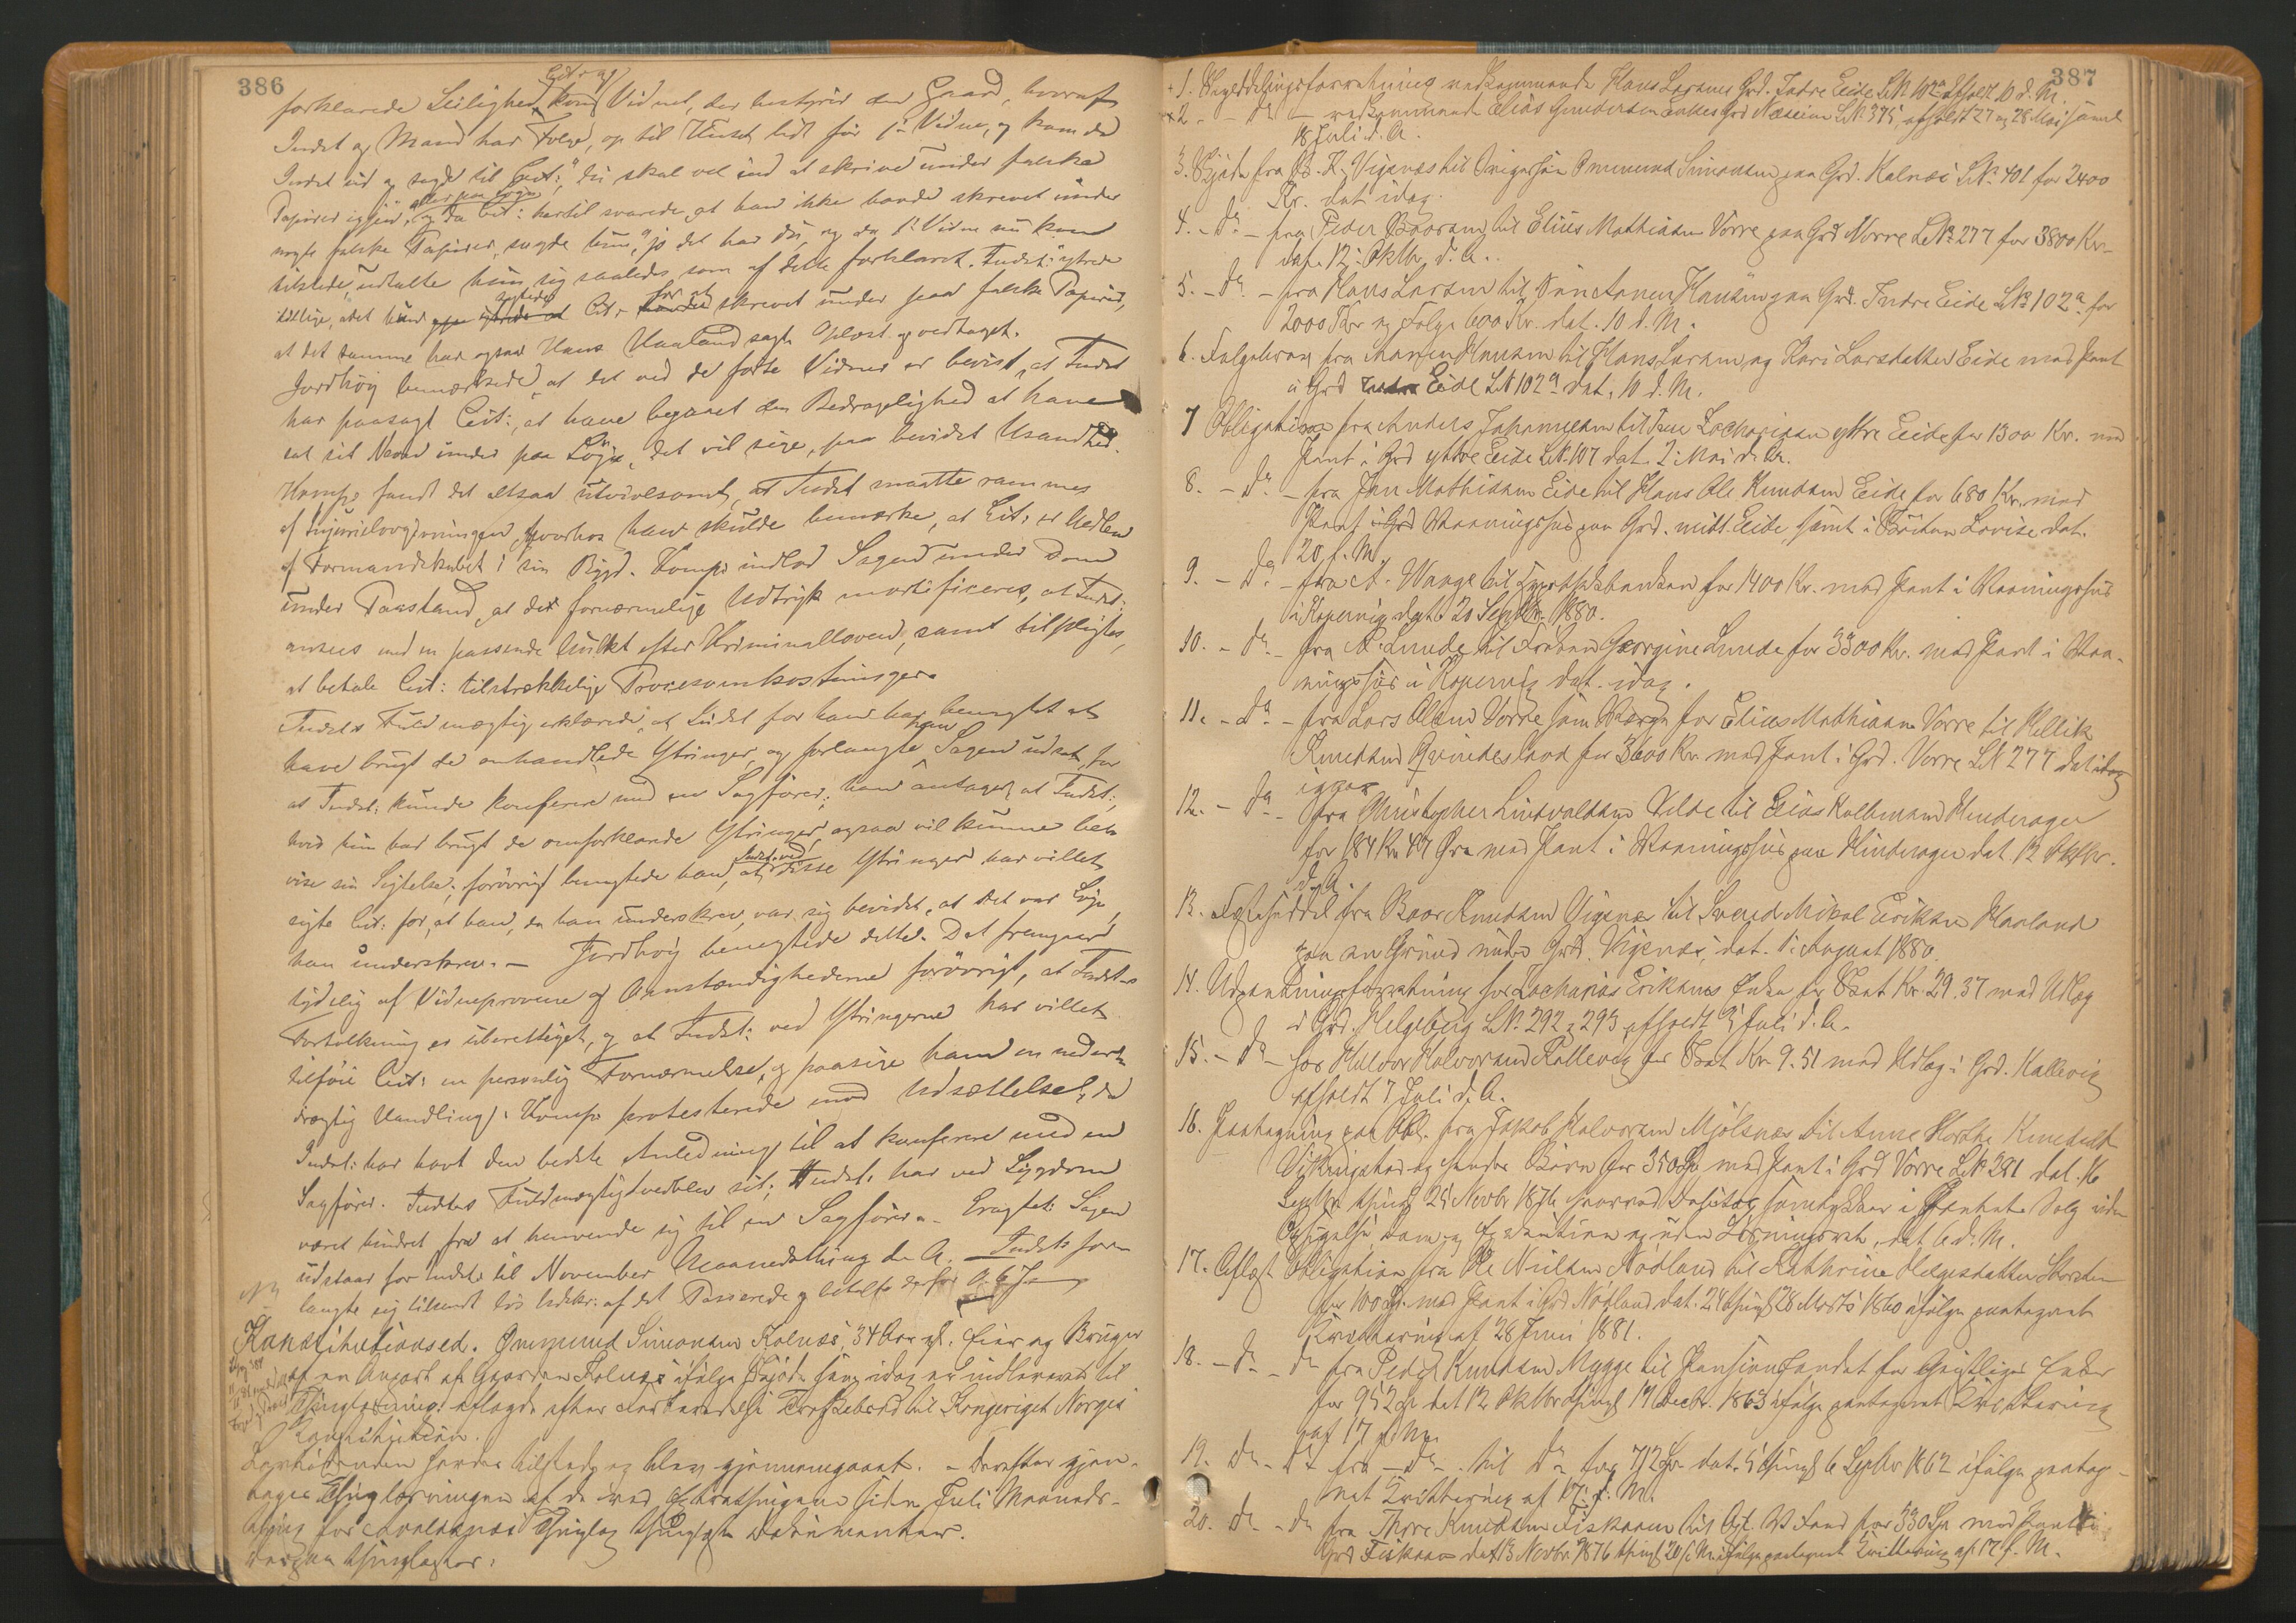 386
forklarede Leilighed kom Vidnet, der bestyrer den Gaard, hvoraf
Indst og Mand har Folge, op til Huset lidt før 1ste Vidne, og kom da
Indst ud og sagde til Cit: "du skal vel ind at skrive under falske
Papirer igjen", og da Cit: hertil svarede, at han ikke havde skrevet under
nogle falske Papirer, sagde hun, "jo det har du", og da 1ste Vidne nu kom
tilstede, udtalte hun sig saaledes, som af dette forklaret. Indst: ytrede
tillige, at Cit: skrevet under paa falske Papirer,
at det samme har ogsaa Hans Haaland sagt. Oplæst og vedtaget.
Jordhøy bemærkede, at det ved de førte Vidner er bevist, at Indst
har paasagt Cit:, at have begaaet den Bedragelighed at have
sat sit Navn under paa Løgn, det vil sige, paa bevidst Usandhed.
fandt det altsaa utvivlsomt, at Indst maatte rammes
af Injurielovgivningen, hvorhos han skulde bemærke, at Cit: er Medlem
af Formandskabet i sin Bygd. indlod Sagen under Dom
under Paastand, at det fornærmelige Udtryk mortificeres, at Indst:
ansees med en passende Mulkt efter Kriminalloven, samt tilpligtes,
at betale Cit: tilstrækkelige Procesomkostninger.
Indsts Fuldmægtig erklærede, at Indst for ham har benegtet at
have brugt de omhandlede Ytringer, og forlangte Sagen udsat, for
at Indst: kunde konferere med en Sagfører; han antager, at Indst:,
hvis hun har brugt de omforklarede Ytringer, ogsaa vil kunne be-
vise sin Sigtelse; forøvrigt benegtede han, at Indst: ved disse Ytringer har villet
sigte Cit: for, at han, da han underskrev, var sig bevidst, at det var Løgn,
han underskrev. — Jordhøy benegtede dette. Det fremgaar
tydelig af Vidneprovene og Omstændighederne forøvrigt, at Indsts
Fortolkning er uberettiget, og at Indst: ved Ytringerne har villet
tilføie Cit: en personlig Fornærmelse, og paasige ham en nedær-
drægtig Handling. protesterede mod Udsættelse, da
Indst: har havt den bedste Anledning til at konferere med en
Sagfører. Indsts Fuldmægtig vedblev sit; Indst: har ved Sygdom
været hindret fra at henvende sig til en Sagfører. Eragtet: Sagen
udstaar for Indst: til November Maanedsthing d. A. Indsts for-
langte sig tilsendt løs Udskr: af det Passerede og betalte derfor
Konstitutionsed. Ommund Simonsen Kolnæs, 34 Aar gl. Eier og Bruger
af en Anpart af Gaarden Kolnæs ifølge Skjøde som idag er indleveret til
Thinglæsning: aflagde efter Foreskrivelse Troskabsed til Kongeriget Norges
Konstitution.
Lagrettet tilstede og blev gjennemgaaet. – Derefter gjen-
toges Thinglæsningen af de ved siden Juli Maaneds-
thing for Avaldsnæs Thinglag thinglæste Dokumenter.
Derpaa thinglæstes:
387
1. Skyldelingsforretning vedkommende Hans Larsens Grd. Indre Eide L.N. 102a afholdt 10 d. M.
2. – do – vedkommende Elias Gundersen Enkes Grd Næseim L.N. 375, afholdt 27 og 28 Mai samt
18 Juli d. A.
3. Skjøde fra B. K. Vigenæs til Ommund Simonsen paa Grd. Kolnæs L.N. 401 for 2400
Kr. dat. idag.
4. – do – fra Peder Baarsen til Elias Mathiasen Vorre paa Grd Vorre L.N. 277 for 3800 Kr.
dat. 12 Oktbr d. A.
5. – do – fra Hans Larsen til Hansen paa Grd. Indre Eide L.N. 102a for
2000 Kr og Folge 600 Kr. dat. 10 d. M.
6. Folgebrev fra Hansen til Hans Larsen og Kari Larsdatter Eide med Pant
i Grd Eide L.N 102a dat. 10 d. M.
7 Obligation fra Anders Johannesen til Zachariasen ytre Eide for 1300 Kr. med
Pant i Grd ytre Eide L.N. 107 dat. 2 Mai d. A.
8. – do – fra Jan Mathiasen Eide til Hans Ole Knudsen Eide for 680 Kr. med
Pant i Vaaningshus paa Grd. midt. Eide, samt i Lovise dat.
20 f. M.
9. – do – fra A. Waage til Hypothekbanken for 1400 Kr. med Pant i Vaaningshus
i Kopervig dat. 20 Septbr. 1880.
10. – do – fra A. Lunde til Frøken Georgine Lunde for 3300 Kr. med Pant i Vaa-
ningshus i Kopervig dat. idag.
11. – do – fra Lars Olsen Vorre som Værge for Elias Mathiasen Vorre til Mellik
Knudsen Qvindesland for 3600 Kr. med Pant i Grd. Vorre L.N 277 dat idag
12. – do – fra Christopher Lindvaldsen Velde til Elias Kolbensen Hinderager
for 184 Kr. 47 Øre med Pant i Vaaningshus paa Hinderager dat. 12 Oktbr.
d. A.
13. Fæsteseddel fra Baar Knudsen Vigenæs til Svend Mikal Eriksen Haaland
paa en Grund under Grd. Vigenæs, dat. 1 August 1880.
14. Udpantningsforretning hos Zacharias Eriksens Enke for Skat Kr. 29.37 med Udlæg
i Grd. Helgeberg L.N. 292 & 293 afholdt 9 Juli d. A.
15. – do – hos Halvor Halvorsen Kallevig for Skat Kr. 9.51 med Udlæg i Grd. Kallevig
afholdt 7 Juli d. A.
16. Paategning paa Obl. fra Jakob Halvorsen Mjølsnæs til Anne Marthe Knudsdt
Vikingstad og hendes Børn for 350 Sp. med Pant i Grd Vorre L.N. 281 dat. 16
Septbr. thingl. 25 Novbr 1876 hvorved Debitor samtykker i Pantets Salg uden
Opsigelse, Dom og Exekution og uden Løsningsret, dat. 6 d. M.
17. Aflæst Obligation fra Ole Nilsen Nødland til Kathrine Helgesdatter
for 100 Sp. med Pant i Grd Nødland dat. 24 thingl. 28 Marts 1860 ifølge paategnet
Kvittering af 28 Juni 1881.
18. – do – do fra Peder Knudsen Mygge til Pensionsfondet for Geistlige Enker
for 952 Sp. dat 12 Oktbr thingl. 17 Decbr. 1863 ifølge paategnet Kvittering
af 17 f. M.
19. do – do – fra – do – til do for 712 Sp. dat. 5 thingl. 6 Septbr 1862 ifølge paateg-
net Kvittering af 17 f. M.
20. do – do fra Thore Knudsen Fiskaaen til Opl. V. Fond for 330 Sp. med Pant i
Grd Fiskaaen dat 13 Novbr. 1876 thingl. ifølge paategnet Kvittering af 17 f. M.